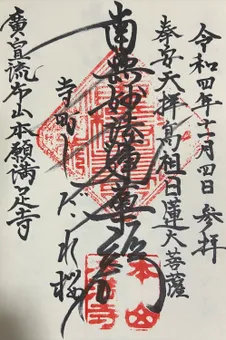 令和四年十一月四日 参拝
奉安天拝高祖日蓮大菩薩
南無妙法蓮華経
しだれ桜
廣宣流布山本願満足寺